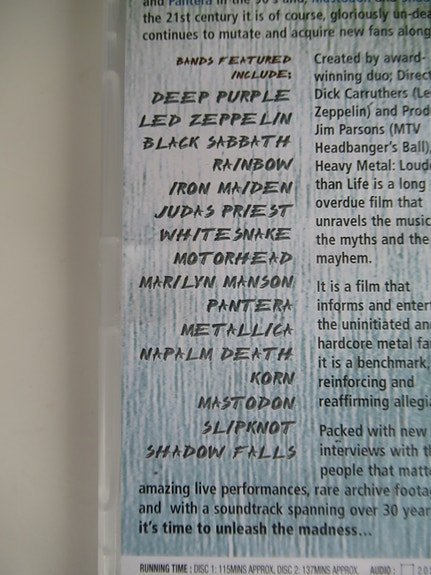 and Pantera in the 90's and, Mastodon and
the 21st century it is of course, gloriously un-dea
continues to mutate and acquire new fans along
BANDS FEATURED
INCLUDE:
DEEP PURPLE
LED ZEPPELIN
BLACK SABBATH
RAINBOW
IRON MAIDEN
JUDAS PRIEST
WHITESNAKE
MOTORHEAD
MARILYN MANSON
PANTERA
METALLICA
NAPALM DEATH
KORN
MASTODON
SLIPKNOT
SHADOW FALLS
Created by award-
winning duo; Direct
Dick Carruthers (Le
Zeppelin) and Prod
Jim Parsons (MTV
Headbanger's Ball),
Heavy Metal: Loud
than Life is a long
overdue film that
unravels the music
the myths and the
mayhem.
It is a film that
informs and entert
the uninitiated an
hardcore metal fa
it is a benchmark,
reinforcing and
reaffirming allegia
Packed with new
interviews with th
people that matt
amazing live performances, rare archive foota
and with a soundtrack spanning over 30 year
it's time to unleash the madness...
RUNNING TIME : DISC 1: 115MINS APPROX, DISC 2: 137MINS APPROX. AUDIO :